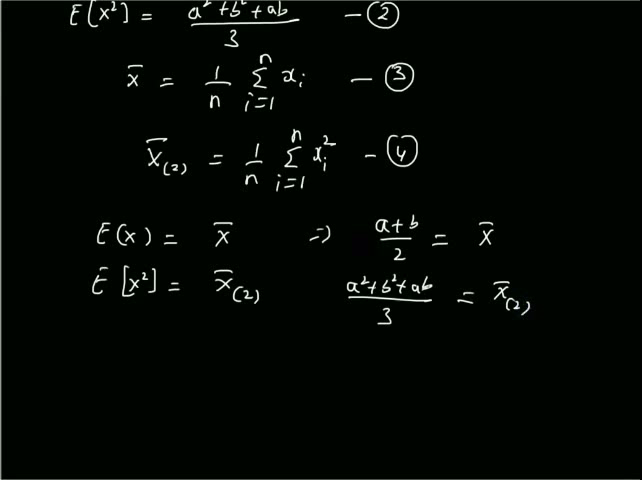 E[x²] = (a² + b² + ab)/3 — ②
x̄ = 1/n Σ_{i=1}^{n} xᵢ — ③
X̄₍₂₎ = 1/n Σ_{i=1}^{n} xᵢ² — ④
E(x) = x̄ ⇒ (a+b)/2 = x̄
E[x²] = x̄₍₂₎ (a² + b² + ab)/3 = x̄₍₂₎